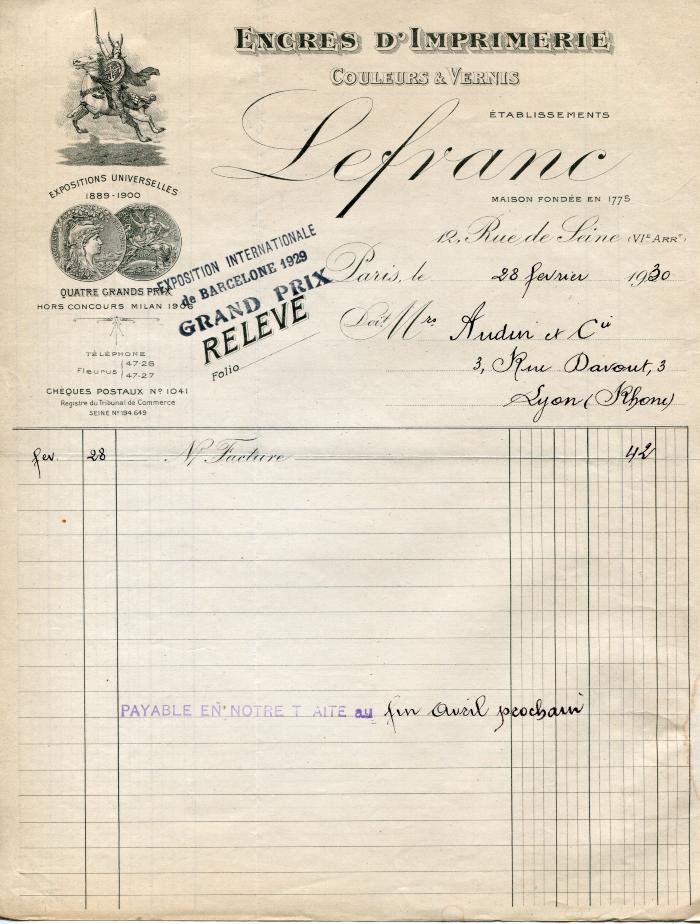 ENCRES D'IMPRIMERIE
COULEURS & VERNIS
ÉTABLISSEMENTS
Lefranc
MAISON FONDÉE EN 1775
12, Rue de Seine (VIe Arrt)
EXPOSITIONS UNIVERSELLES
1889-1900
QUATRE GRANDS PRIX
HORS CONCOURS MILAN 1906
TÉLÉPHONE
Fleurus 47-26
47-27
CHÈQUES POSTAUX No 1041
Registre du Tribunal de Commerce
SEINE No 194.649
EXPOSITION INTERNATIONALE
de BARCELONE 1929
GRAND PRIX
RELEVÉ
Folio
Paris, le 28 fevrier 1930
Doit Mrs Audin et Cie
3, Rue Davout, 3
Lyon (Rhone)
fev. 28 N/ Facture 42
PAYABLE EN NOTRE T AITE au fin avril prochain